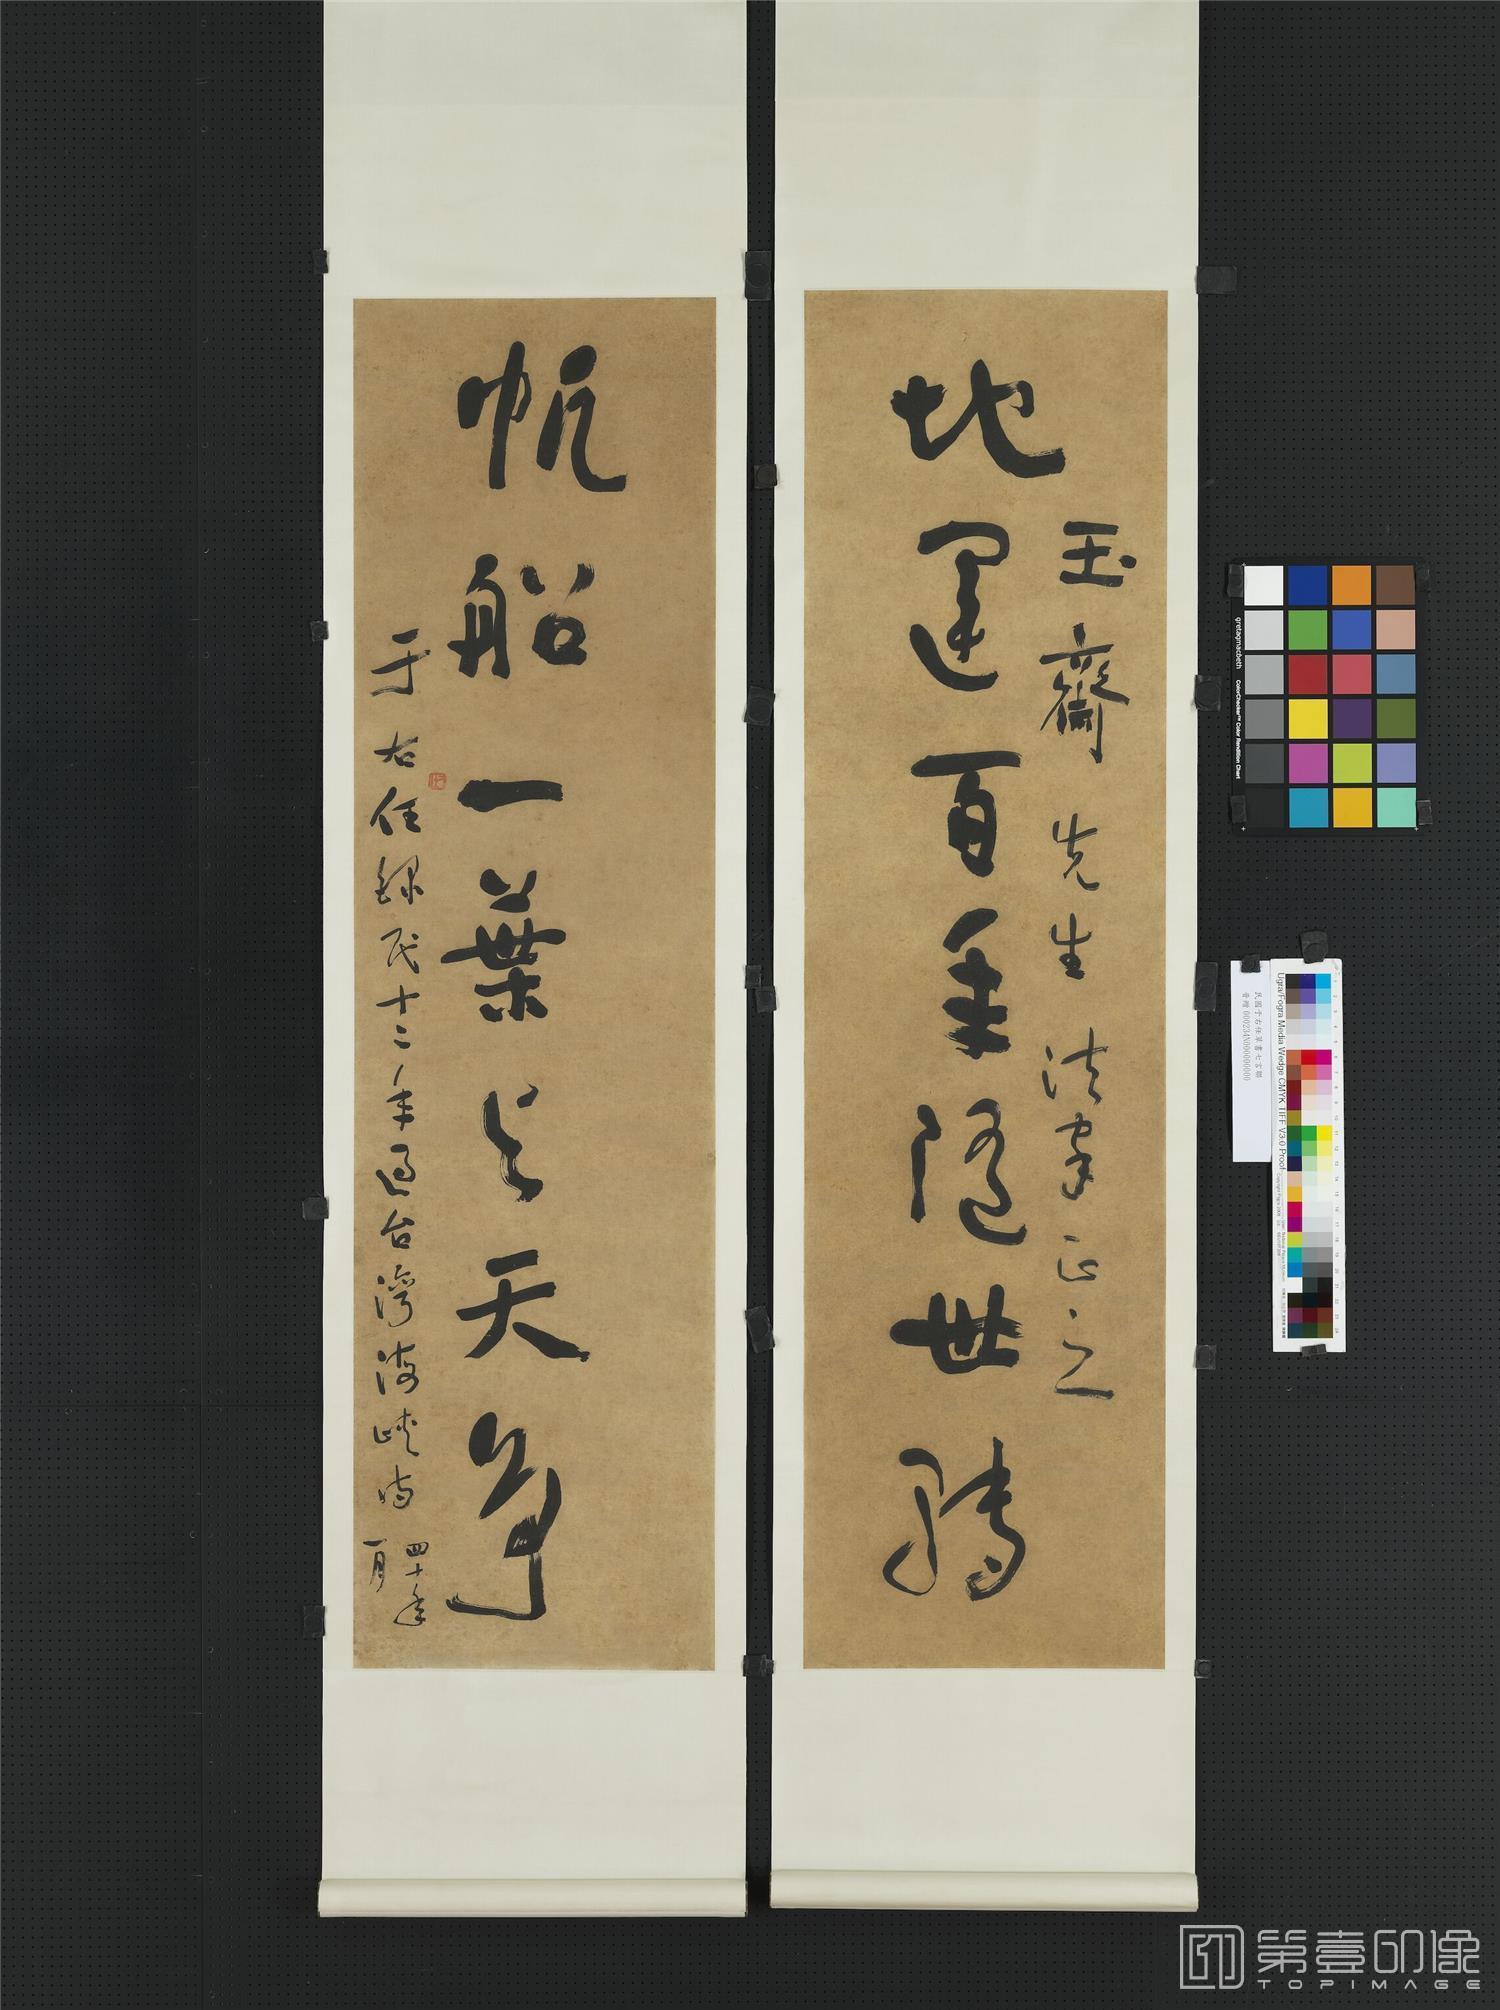 地運百年隨世轉
玉齋先生法家正之
帆船一葉與天爭
于右任錄民十二年過台灣海峽時
四十年
一月
gretagmacbeth
ColorChecker™ Color Rendition Chart
民國于右任草書七言聯
Ugra/Fogra Media Wedge CMYK TIFF V3.0 Proof
第壹印像
TOPIMAGE